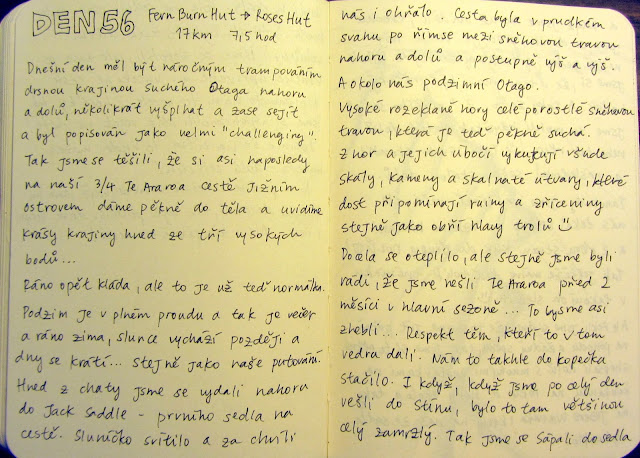 DEN 56
Fern Burn Hut → Roses Hut
17 km 7,5 hod
Dnešní den měl být náročným trampováním
drsnou krajinou suchého Otaga nahoru
a dolů, několikrát vyšplhat a zase sejít
a byl popisován jako velmi "challenging".
Tak jsme se těšili, že si asi naposledy
na naší 3/4 Te Araroa cestě Jižním
ostrovem dáme pěkně do těla a uvidíme
krásy krajiny hned ze tří vysokých
bodů...
Ráno opět kláda, ale to je už teď normálka.
Podzim je v plném proudu a tak je večer
a ráno zima, slunce vychází později a
dny se krátí... stejně jako naše putování.
Hned z chaty jsme se vydali nahoru
do Jack Saddle - prvního sedla na
cestě. Sluníčko svítilo a za chvíli
nás i ohřálo. Cesta byla v prudkém
svahu po římse mezi sněhovou travou
nahoru a dolů a postupně výš a výš.
A okolo nás podzimní Otago.
Vysoké rozeklané hory celé porostlé sněhovou
travou, která je teď pěkně suchá.
Z hor a jejich úbočí vykukují všude
skály, kameny a skalnaté útvary, které
dost připomínají ruiny a zříceniny
stejně jako obří hlavy trolů ☺
Docela se oteplilo, ale stejně jsme byli
rádi, že jsme nešli Te Araroa před 2
měsíci v hlavní sezoně... To bysme asi
zhebli... Respekt těm, kteří to v tom
vedra dali. Nám to takhle do kopečka
stačilo. I když, když jsme po celý den
vešli do stínu, bylo to tam většinou
celý zamrzlý. Tak jsme se sápali do sedla